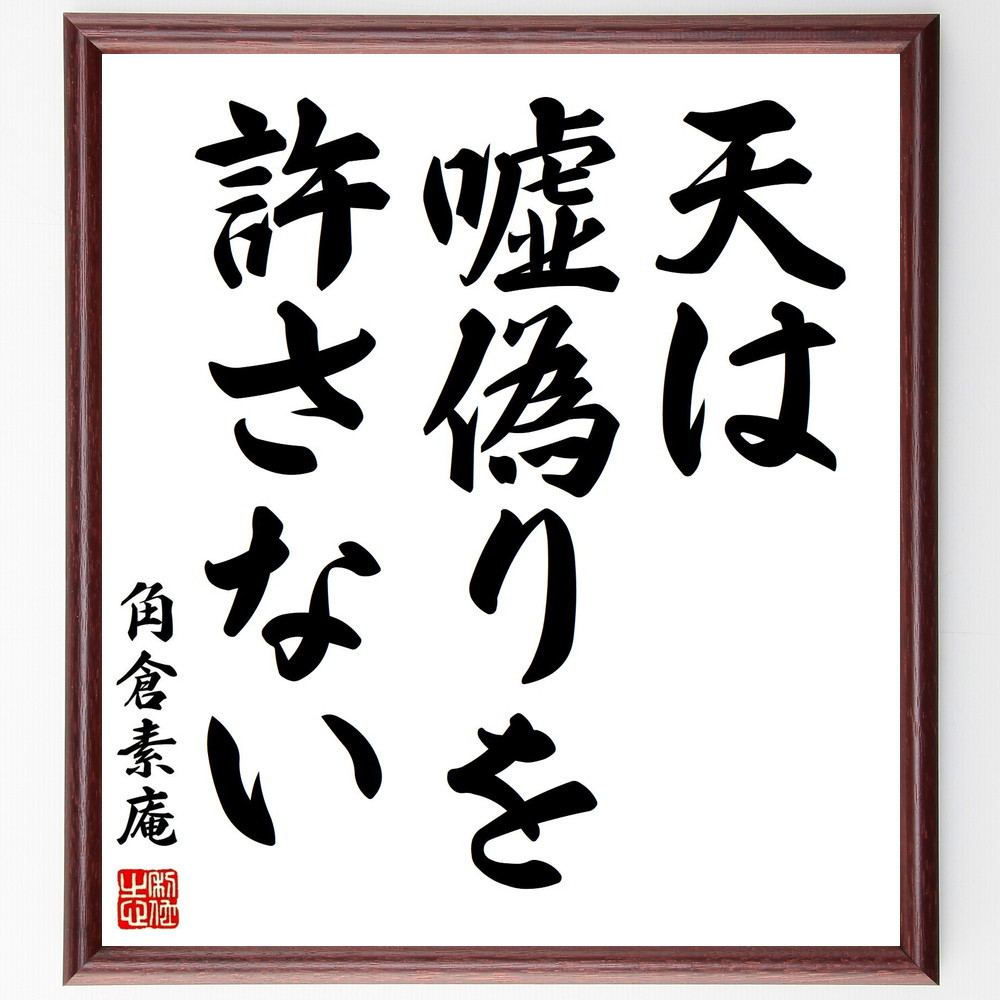 天は
嘘偽りを
許さない
角倉素庵